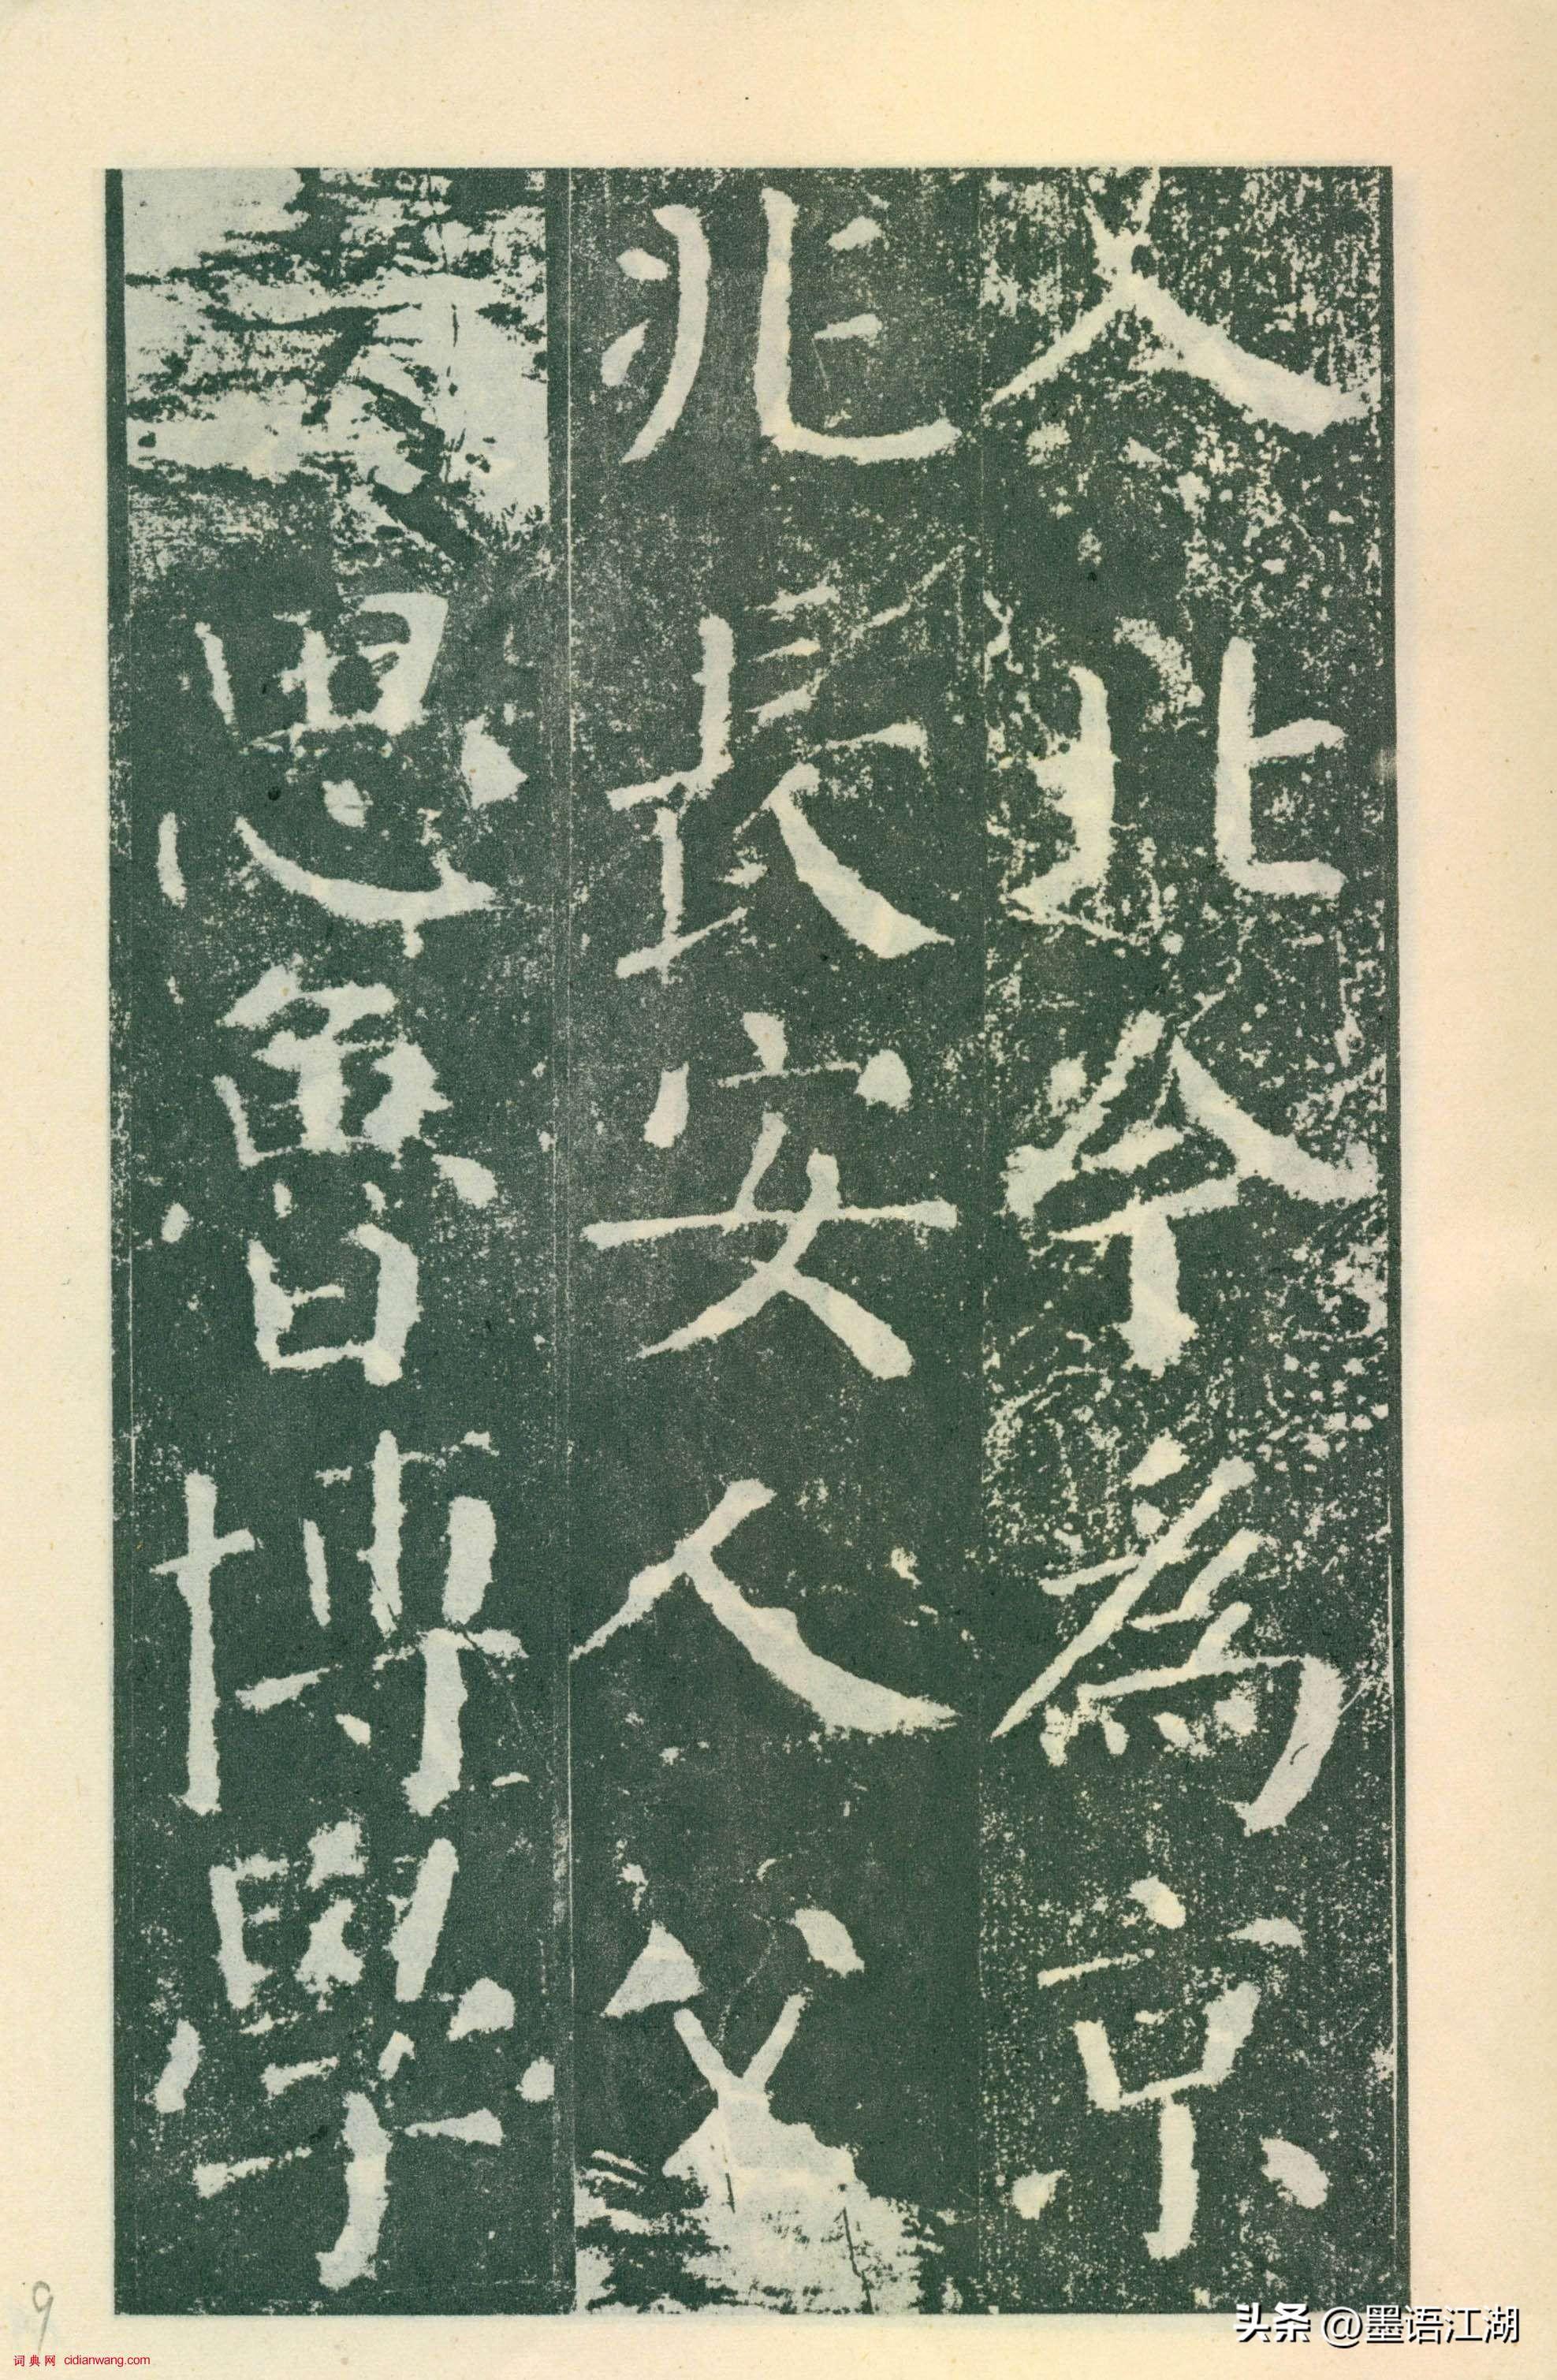 入北今為京
兆長安人父
思魯博學
9
词典网 cidianwang.com
头条 @墨语江湖